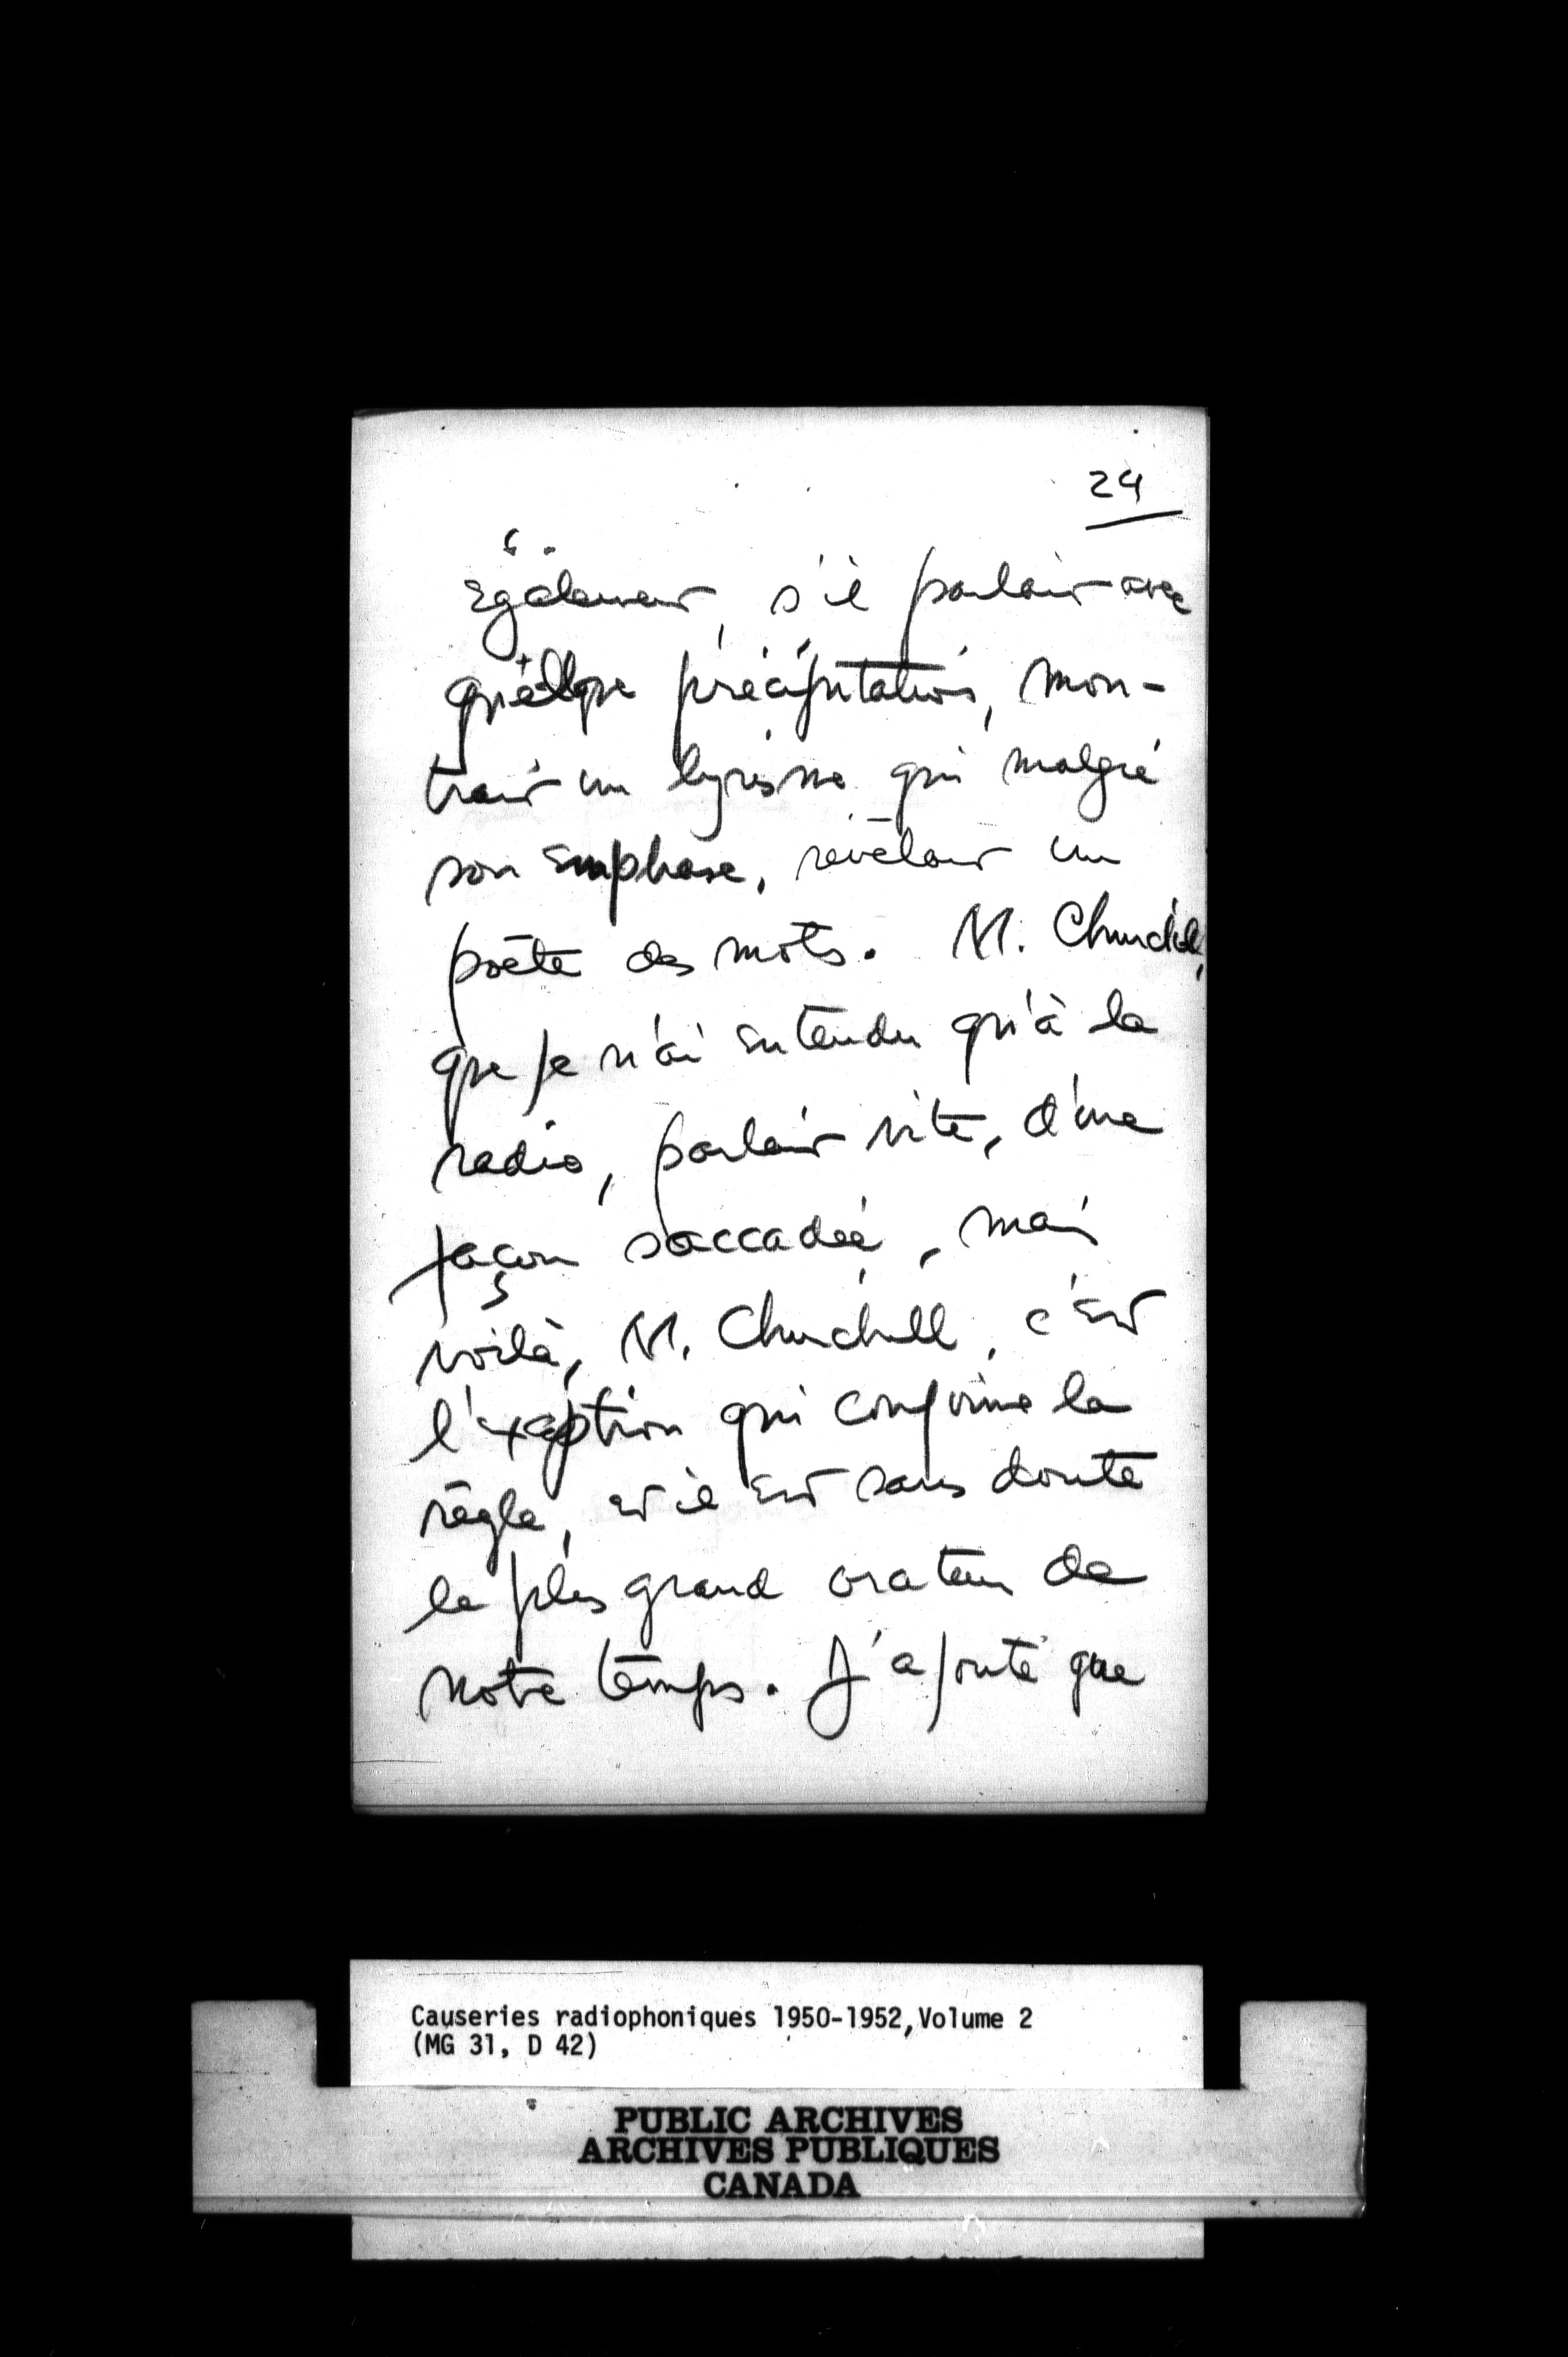 24
également, s'il parlait avec
quelque précipitation, mon-
trait un lyrisme qui malgré
son emphase, révélait un
poète des mots. M. Churchill,
que je n'ai entendu qu'à la
radio, parlait vite, d'une
façon saccadée, mais
voilà, M. Churchill, c'est
l'exception qui confirme la
règle, et il est sans doute
le plus grand orateur de
notre temps. J'ajoute que
Causeries radiophoniques 1950-1952, Volume 2
(MG 31, D 42)
PUBLIC ARCHIVES
ARCHIVES PUBLIQUES
CANADA